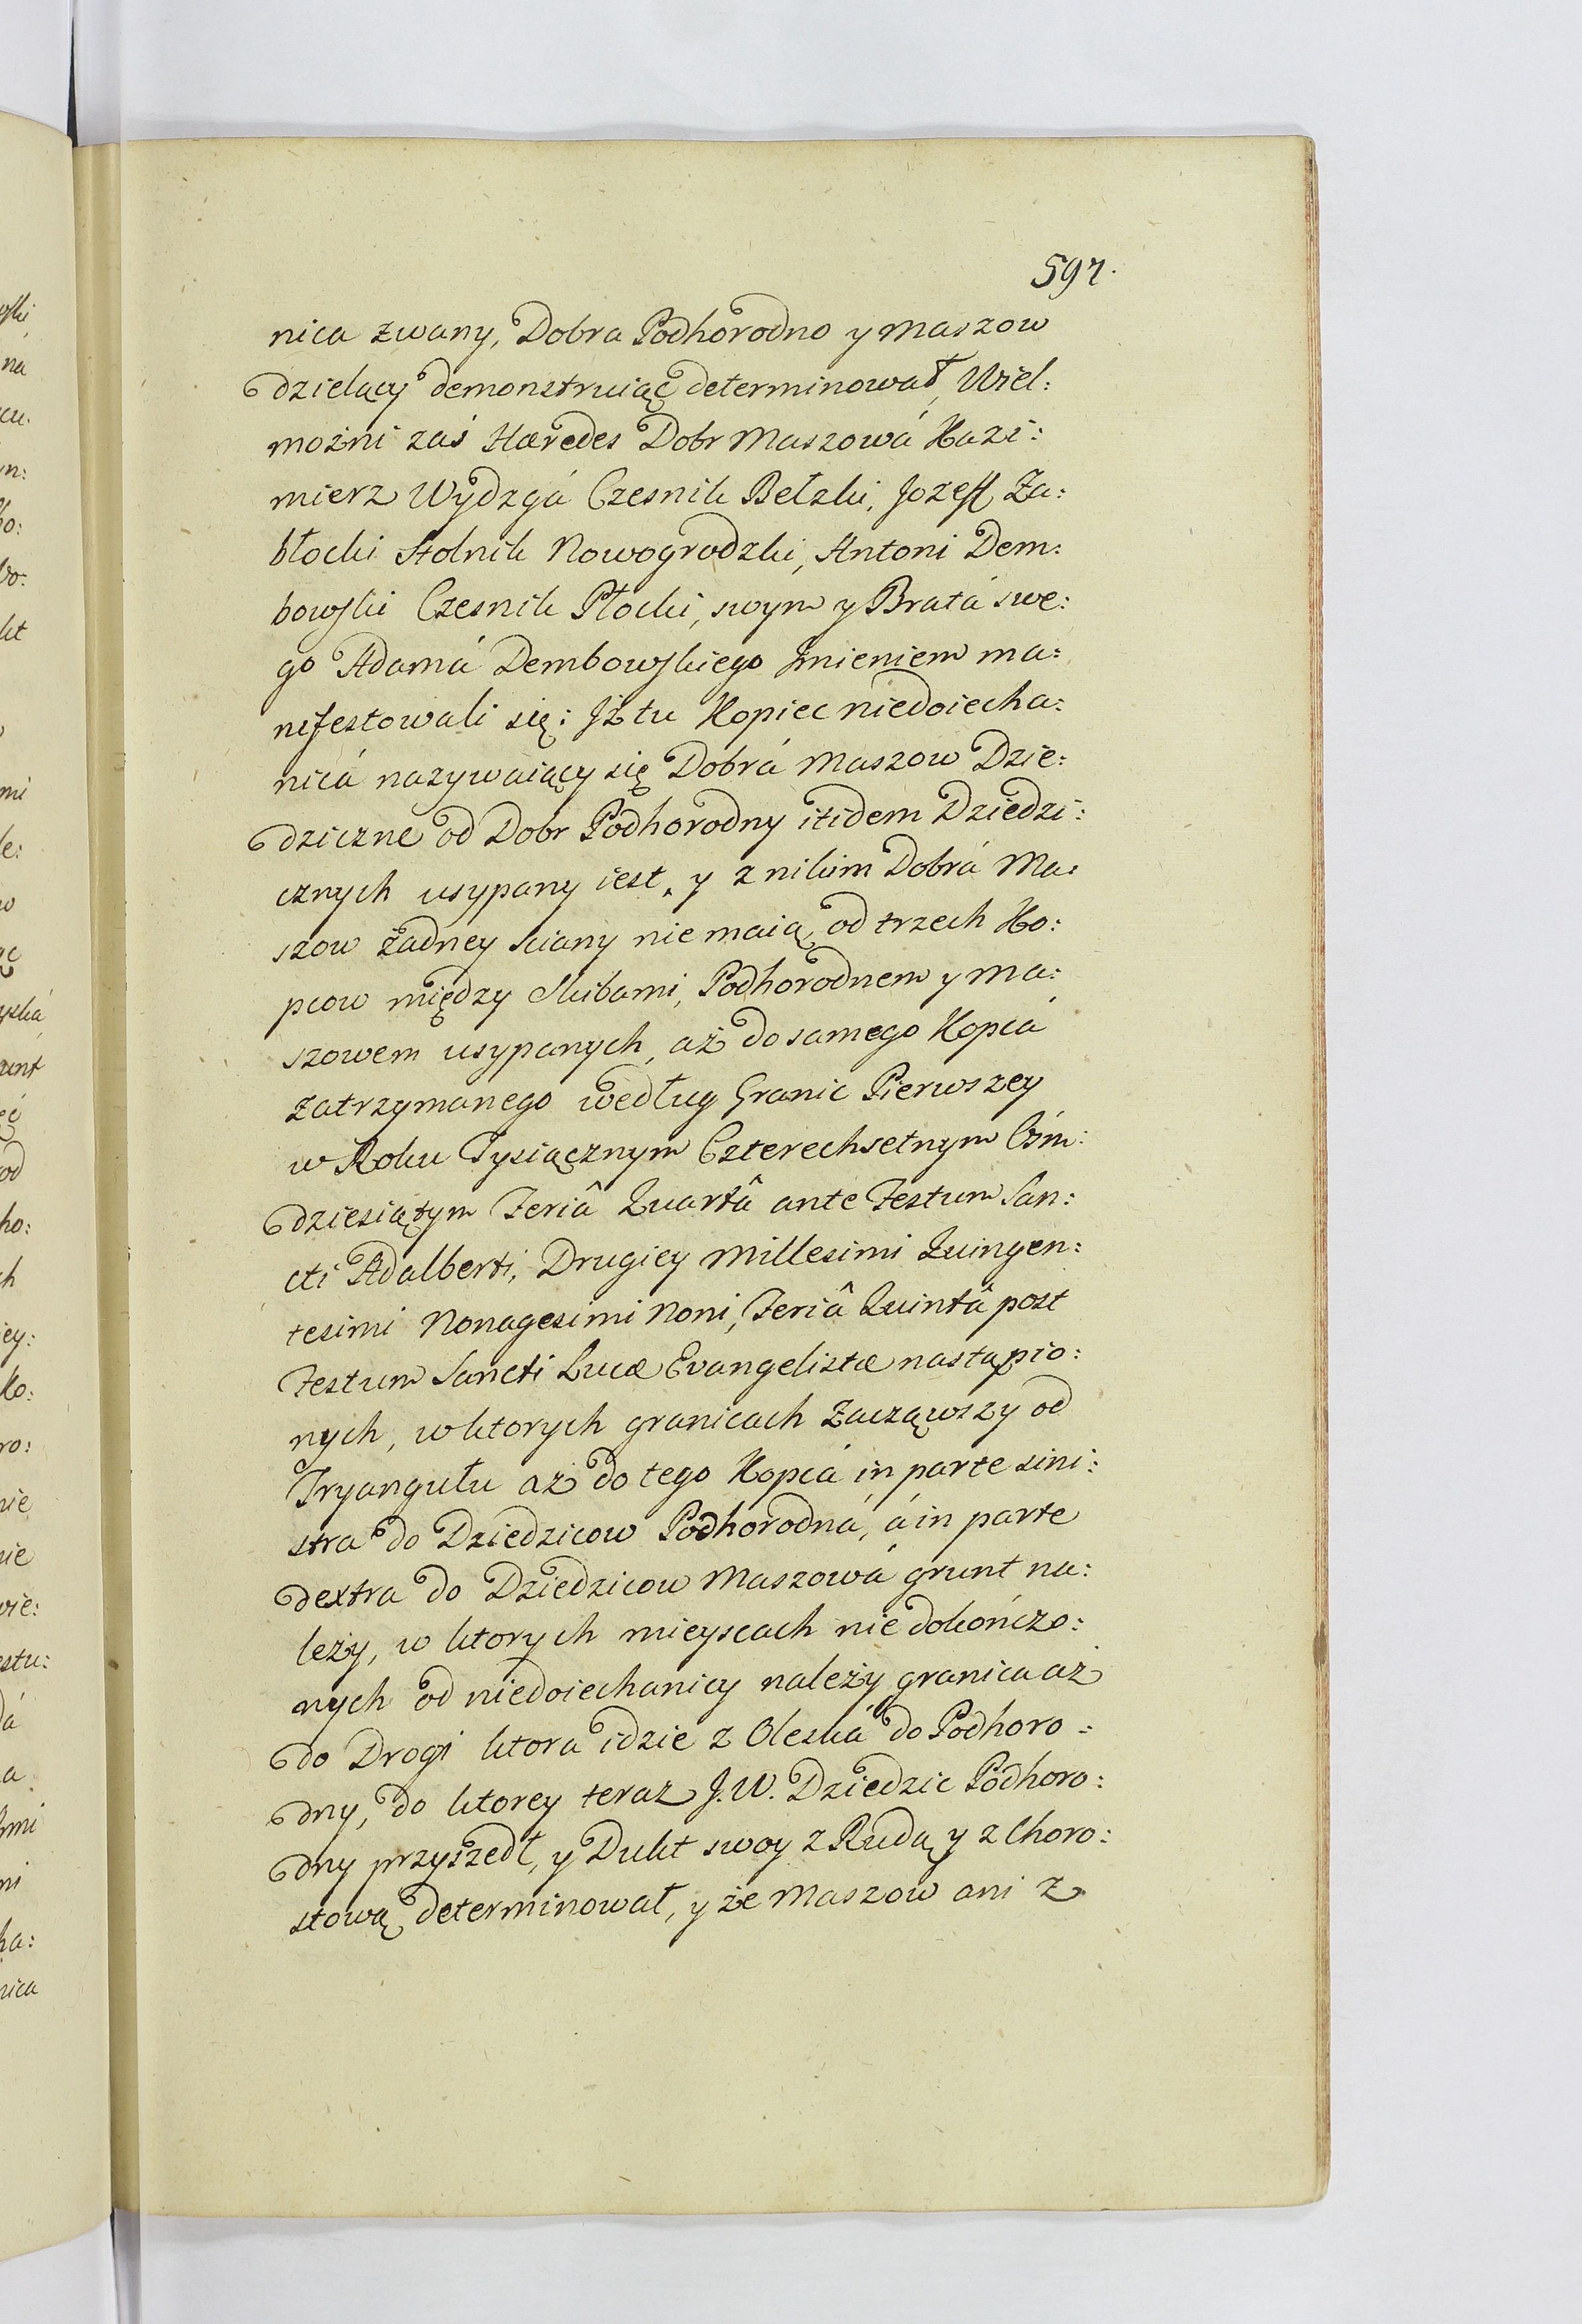 597.
nica zwany, Dobra Podhorodno y Maszow
dzielący demonstruiąc determinował, Wiel:
możni zaś Hæredes Dobr Maszowá Kazi:
mierz Wydzgá Czesnik Bełzki, Jozeff Za:
błocki Stolnik Nowogrodzki, Antoni Dem:
bowski Czesnik Płocki, swym y Bratá swe:
go Adamá Dembowskiego Jmieniem ma:
nifestowali się: Jż tu Kopiec niedoiecha:
nicá nazywaiący się Dobrá Maszow Dzie:
dziczne od Dobr Podhorodny itidem Dziedzi:
cznych usypany iest, y z nikim Dobrá Ma:
szow żadney sciany nie maią, od trzech Ko:
pcow między Skibami, Podhorodnem y Ma:
szowem usypanych, aż do samego Kopcá
zatrzymanego według Granic Pierwszey
w Roku Tysiącznym Czterechsetnym Ośm:
dziesiątym Feriâ Quartâ ante Festum San:
cti Adalberti, Drugiey Millesimi Quingen:
tesimi Nonagesimi Noni, Feriâ Quintâ post
Festum Sancti Lucæ Evangelistæ nastąpio:
nych, w ktorych granicach zacząwszy od
Tryangułu aż do tego Kopcá in parte sini:
stra do Dziedzicow Podhorodná, á in parte
dextra do Dziedzicow Maszowá grunt na:
leży, w ktorych mieyscach nie dokończo:
nych od niedoiechanicy należy granica aż
do Drogi ktora idzie z Oleská do Podhoro:
dny, do ktorey teraz J.W. Dziedzic Podhoro:
dny przyszedł, y Dukt swoy z Rudą y z Choro:
stową determinował, y że Maszow ani z